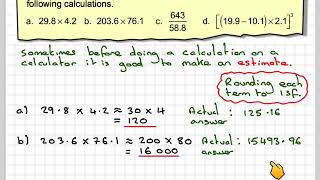 following calculations.
a. 29.8 × 4.2 b. 203.6 × 76.1 c. 643/58.8 d. [(19.9 − 10.1) × 2.1]³
Sometimes before doing a calculation on a
calculator it is good to make an estimate.
Rounding each
term to 1sf.
a) 29.8 × 4.2 ≈ 30 × 4 Actual : 125.16
= 120 answer
b) 203.6 × 76.1 ≈ 200 × 80 Actual : 15493.96
= 16 000 answer